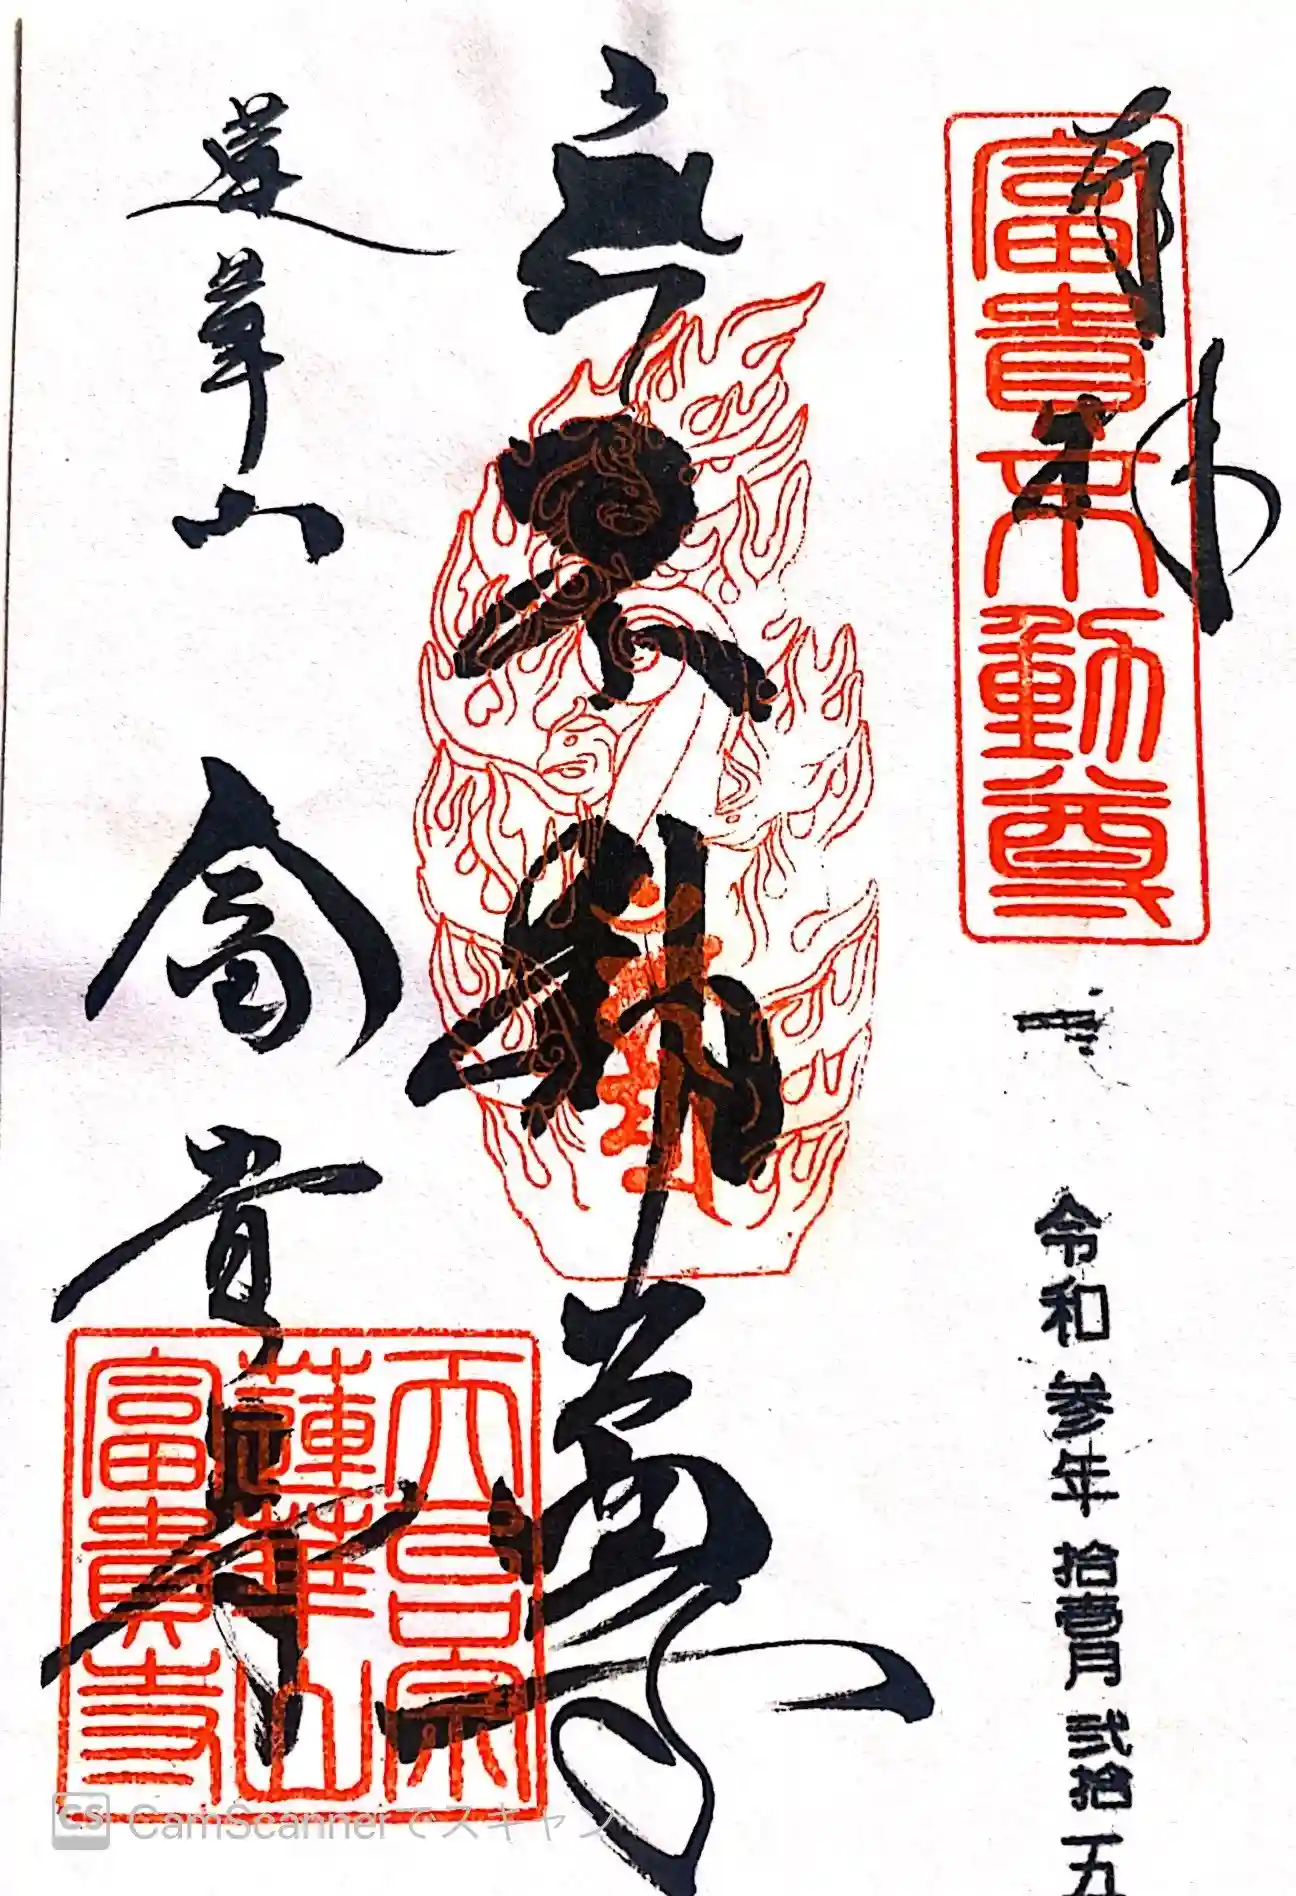 奉拝
富貴不動尊
令和参年拾壹月弐拾五
不動尊
蓮華山
富貴寺
天台宗
蓮華山
富貴寺
CS CamScannerでスキャン